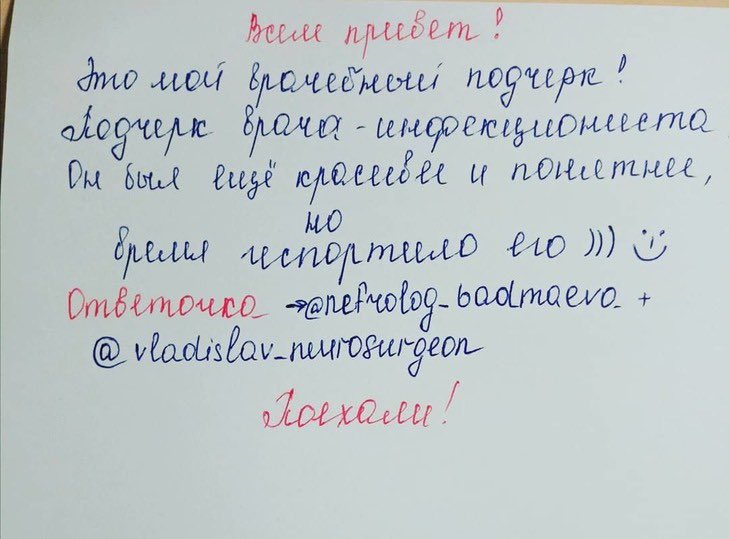 Всем привет!
Это мой врачебный подчерк!
Подчерк врача-инфекциониста
Он был ещё красивее и понятнее,
но
время испортило его )))
Ответочка →@nefrolog_badmaeva_ +
@vladislav_neurosurgeon
Поехали!